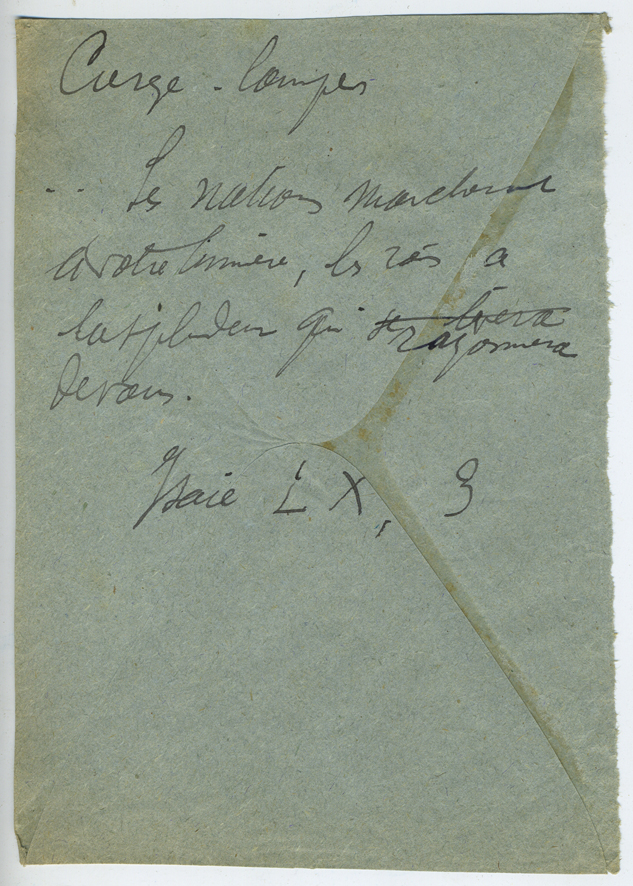 Cierge - lampes
.. Les nations marcheront
à votre lumière, les rois à
la splendeur qui se lèvera
rayonnera
de vous.
Isaie LX, 3